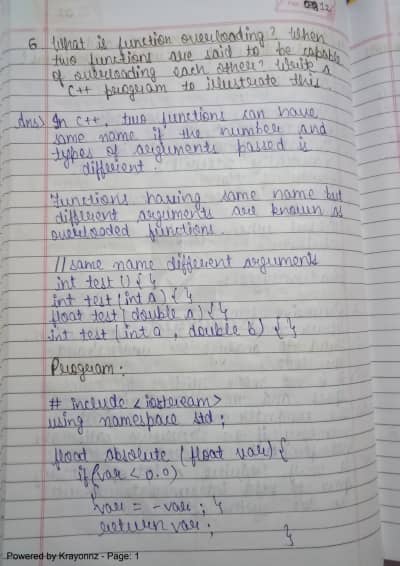 6. What is function overloading? When
two functions are said to be capable
of overloading each other? Write a
C++ program to illustrate this.
Ans) In C++, two functions can have
same name if the number and
types of arguments passed is
different.
Functions having same name but
different arguments are known as
overloaded functions.
// same name different arguments
int test () { }
int test (int a) { }
float test (double a) { }
int test (int a, double b) { }
Program:
# include <iostream>
using namespace std;
float absolute (float var) {
if (var < 0.0)
{
var = -var; }
return var;
}
Powered by Krayonnz - Page: 1